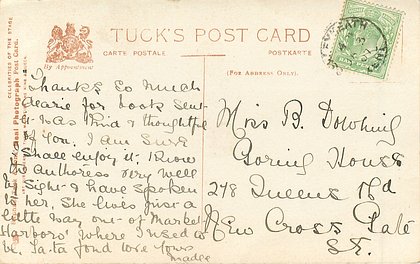 TUCK'S POST CARD
CARTE POSTALE
POSTKARTE
By Appointment
(FOR ADDRESS ONLY.)
CELEBRITIES OF THE STAGE
Real Photograph Post Card.
Thanks so much
dearie for book sent
it was kind & thoughtful
of You. I am sure
shall enjoy it. I know
the authoress very well
by sight & have spoken
to her. She lives just a
little way one of Market
Harboro' where I used to
be. Ta-ta fond love Yours
Madge
Miss B. Dowling
Goring House
248 Queens Rd
New Cross Gate
S.E.